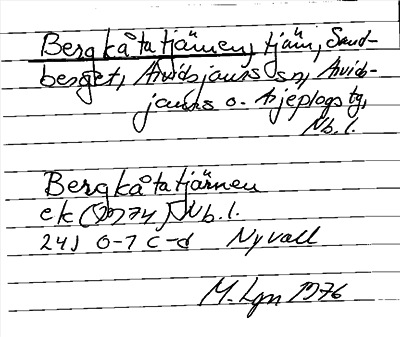 Bergkåtatjärnen, tjärn, Sand-
berget, Arvidsjaurs sn, Arvids-
jaurs o. Arjeplogs tg,
Nb. l.
Bergkåtatjärnen
ek (1974) Nb. l.
24J 0-1 c-d Nyvall
M. Lgn 1976